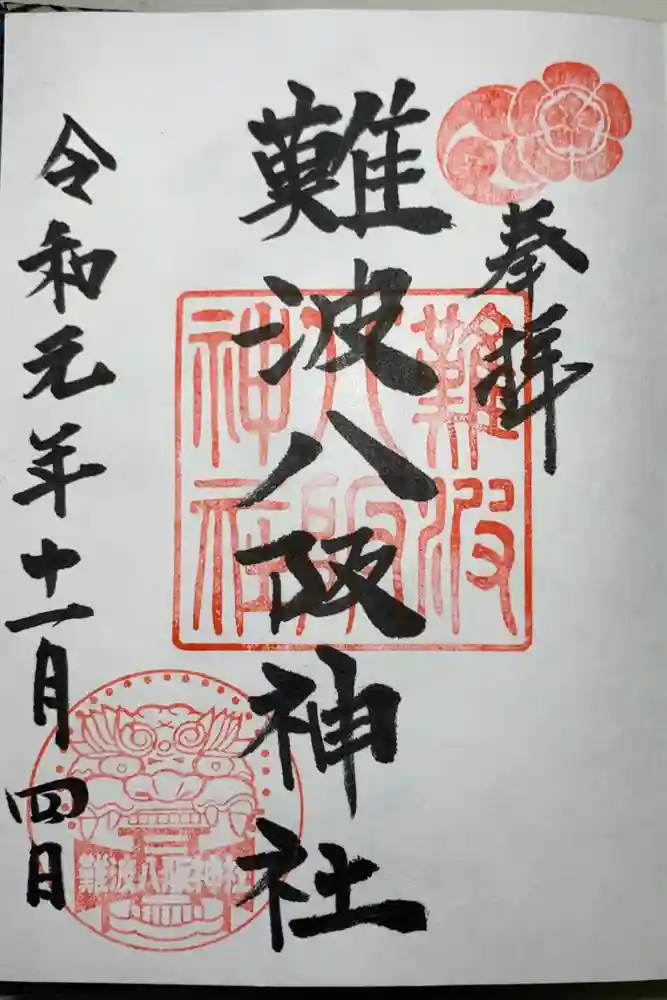 奉拝
難波八阪神社
令和元年十一月四日
難波八阪神社
難波八阪神社